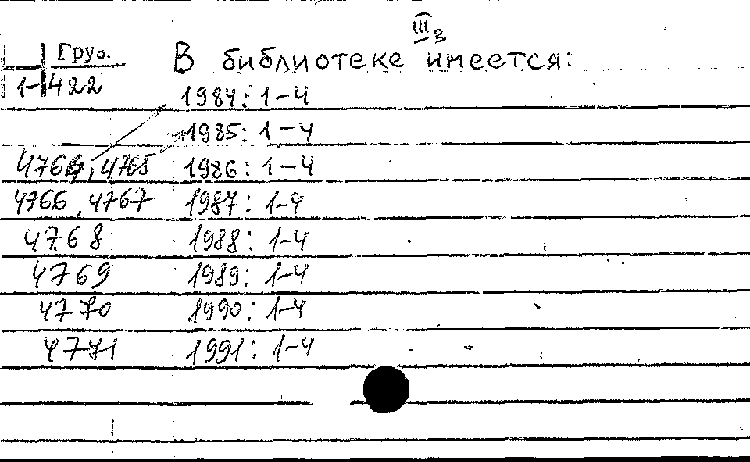 III з
Груз. В библиотеке имеется:
1-422
1984: 1-4
1985: 1-4
4764, 4765 1986: 1-4
4766, 4767 1987: 1-4
4768 1988: 1-4
4769 1989: 1-4
4770 1990: 1-4
4771 1991: 1-4